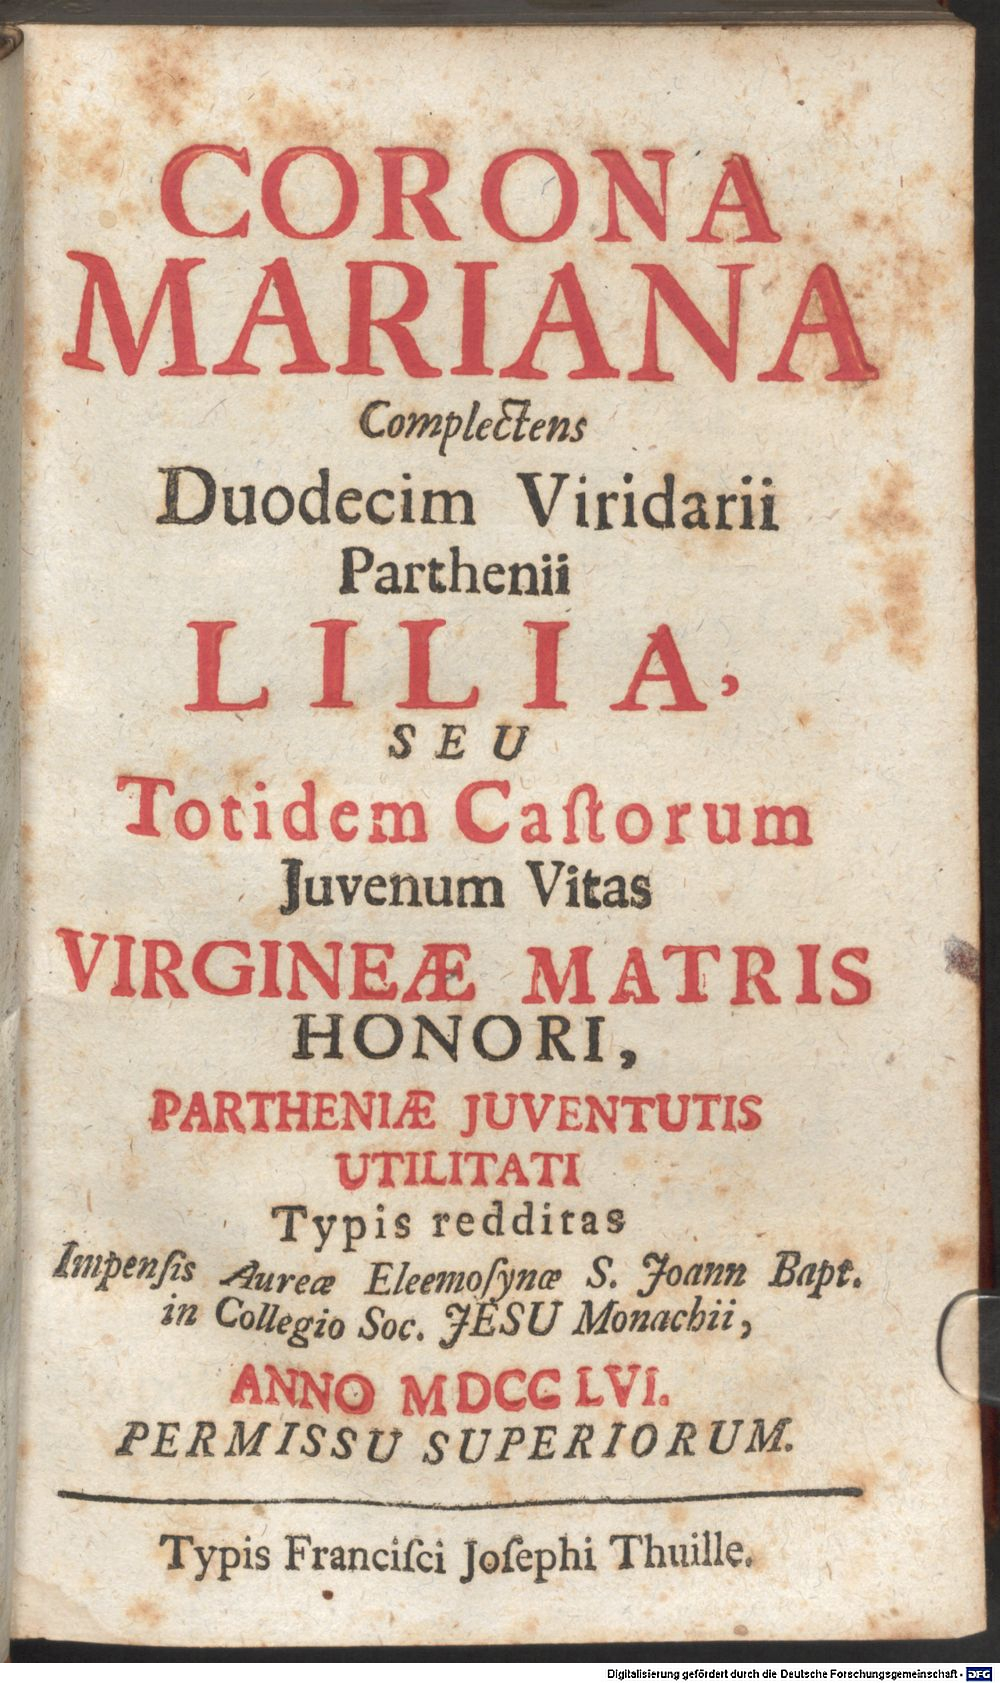 CORONA
MARIANA
Complectens
Duodecim Viridarii
Parthenii
LILIA,
SEU
Totidem Caſtorum
Juvenum Vitas
VIRGINEÆ MATRIS
HONORI,
PARTHENIÆ JUVENTUTIS
UTILITATI
Typis redditas
Impenſis Aureæ Eleemoſynæ S. Joann Bapt.
in Collegio Soc. JESU Monachii,
ANNO MDCCLVI.
PERMISSU SUPERIORUM.
Typis Franciſci Joſephi Thuille.
Digitalisierung gefördert durch die Deutsche Forschungsgemeinschaft - DFG